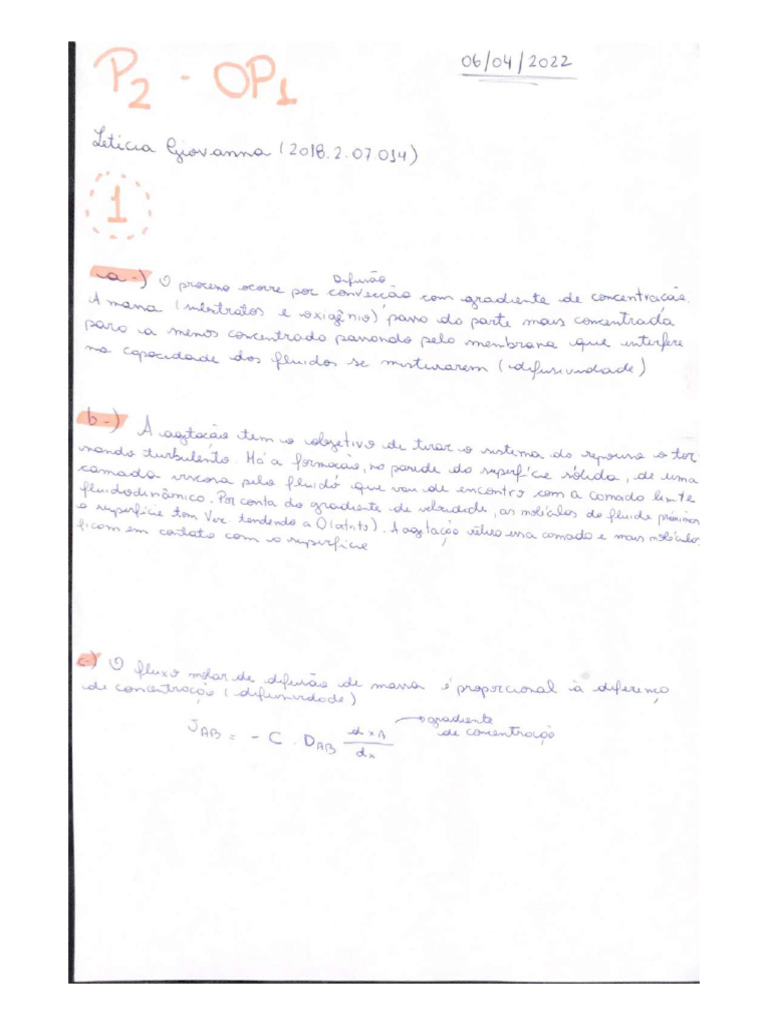 P2 - OP1
06/04/2022
Letícia Giovanna (2018.2.07.014)
1
a-) O processo ocorre por convecção com gradiente de concentração.
Difusão
A massa (nutrientes e oxigênio) passa da parte mais concentrada
para a menos concentrada passando pela membrana que interfere
na capacidade dos fluidos se misturarem (difusividade)
b-) A agitação tem o objetivo de tirar o sistema do repouso o tor
nando turbulento. Há a formação, na parede da superfície sólida, de uma
camada viscosa pelo fluido que vai de encontro com a camada limite
fluidodinâmico. Por conta do gradiente de velocidade, as moléculas do fluido próximas
a superfície tem tendendo a 0 (atrito). A agitação retira essa camada e mais moléculas
ficam em contato com a superfície
c-) O fluxo molar de difusão de massa é proporcional à diferença
de concentração (difusividade)
J_AB = - C . D_AB dx_A/dx → gradiente
de concentração